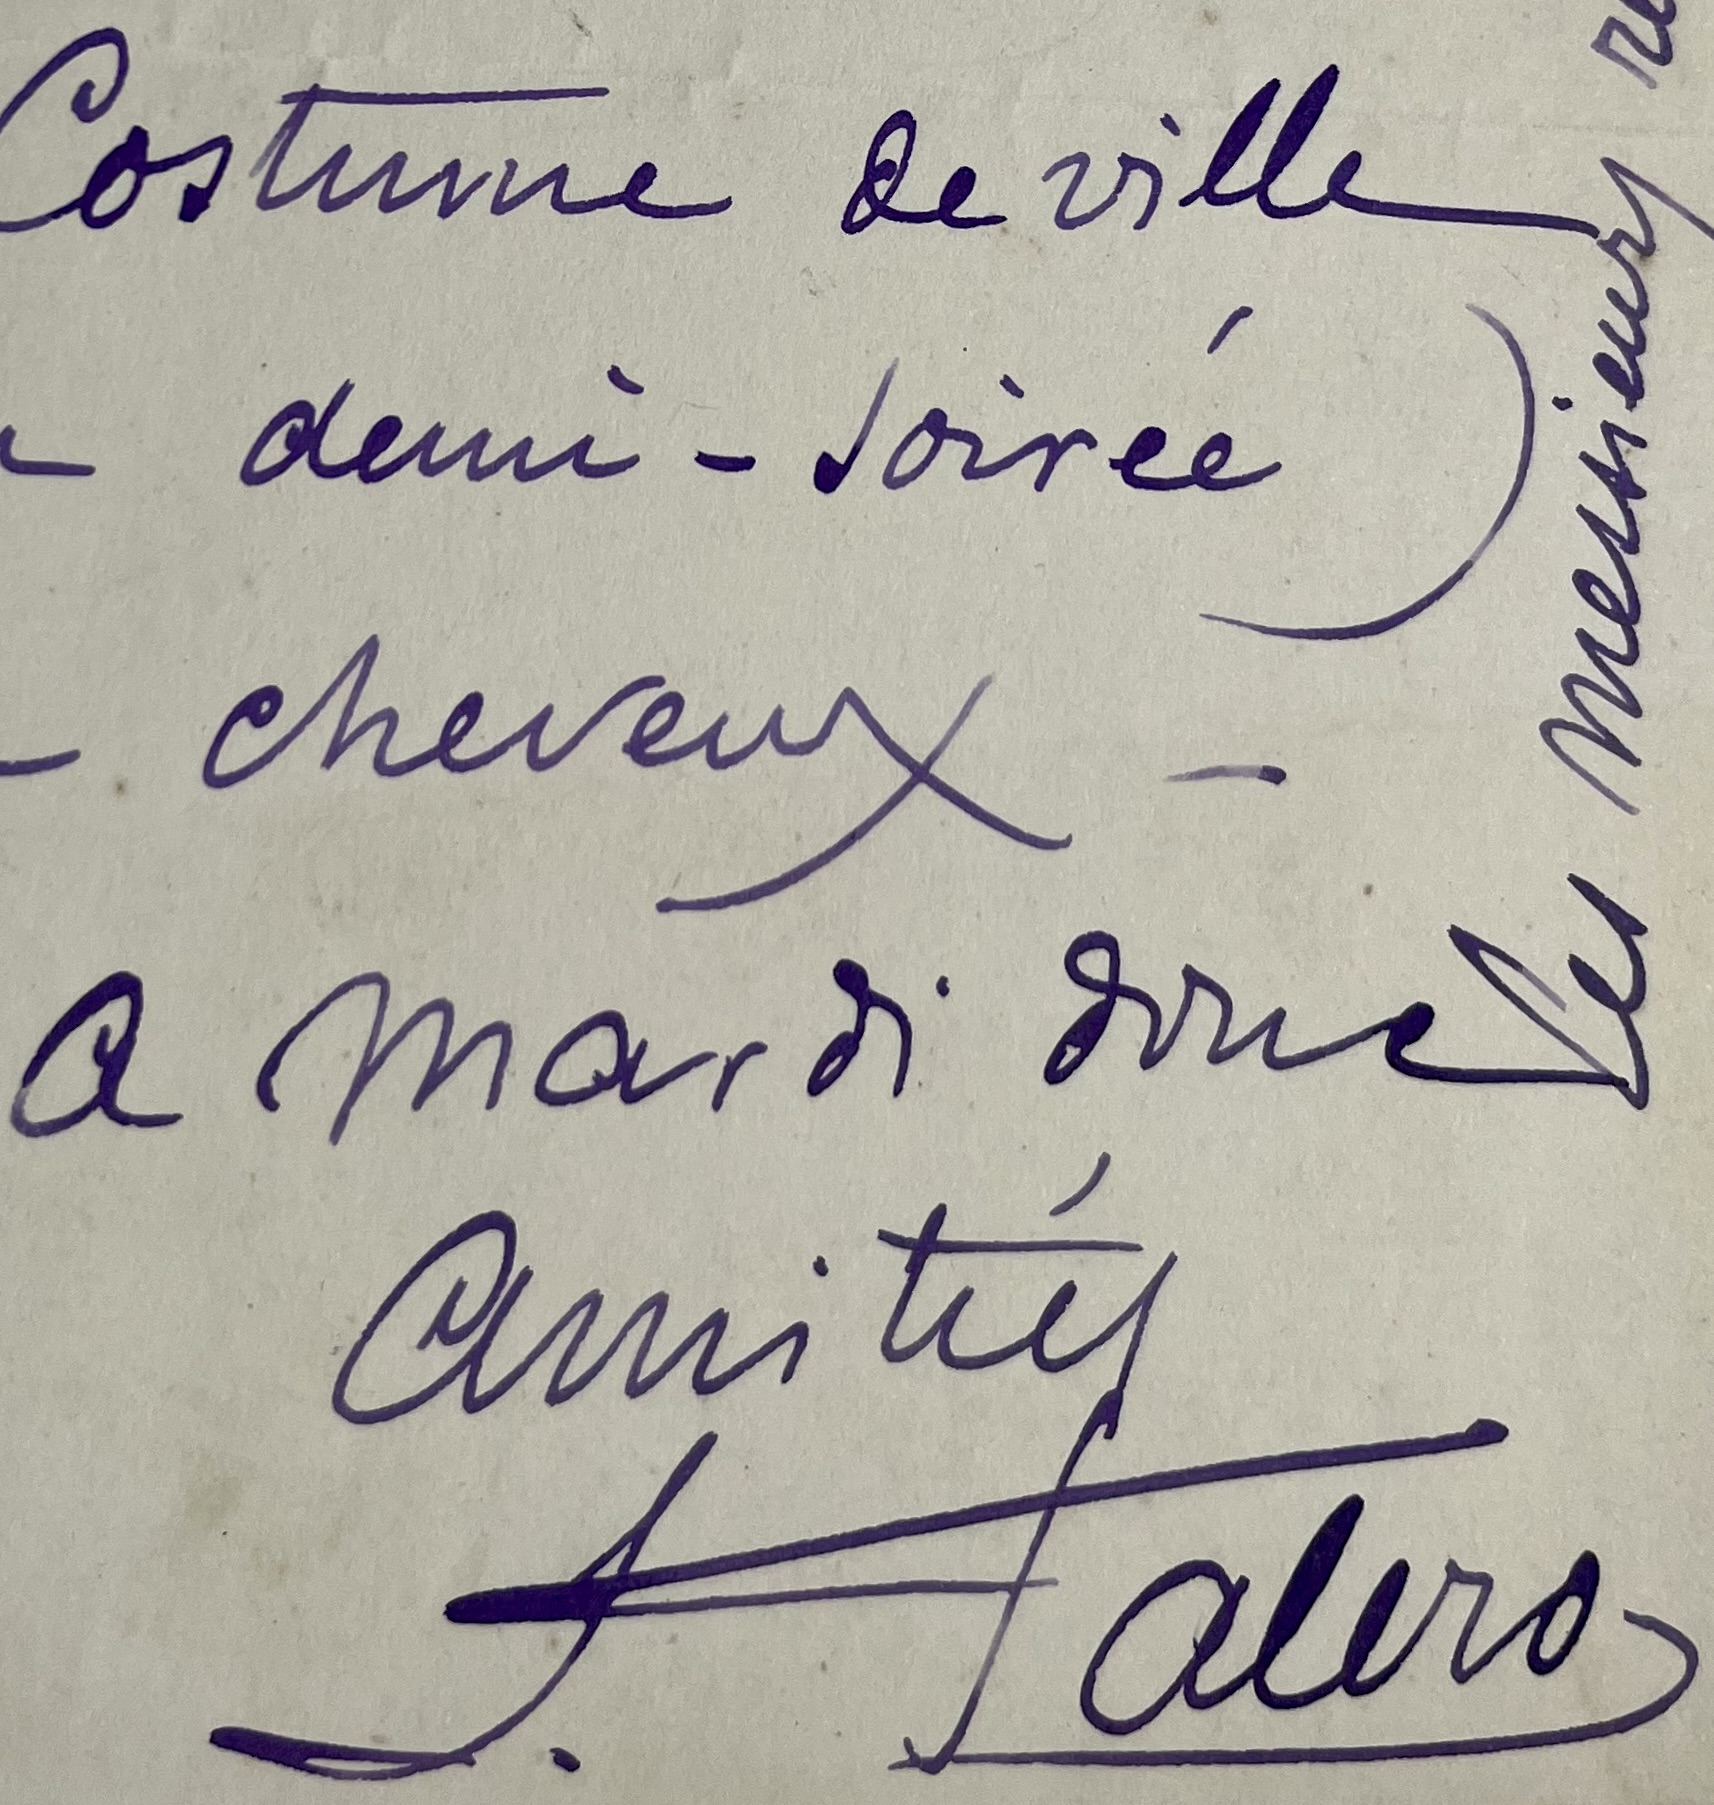 Costume de ville
- demi-soirée)
- cheveux -
a mardi donc
Amitiés
J. Falero
les messieurs